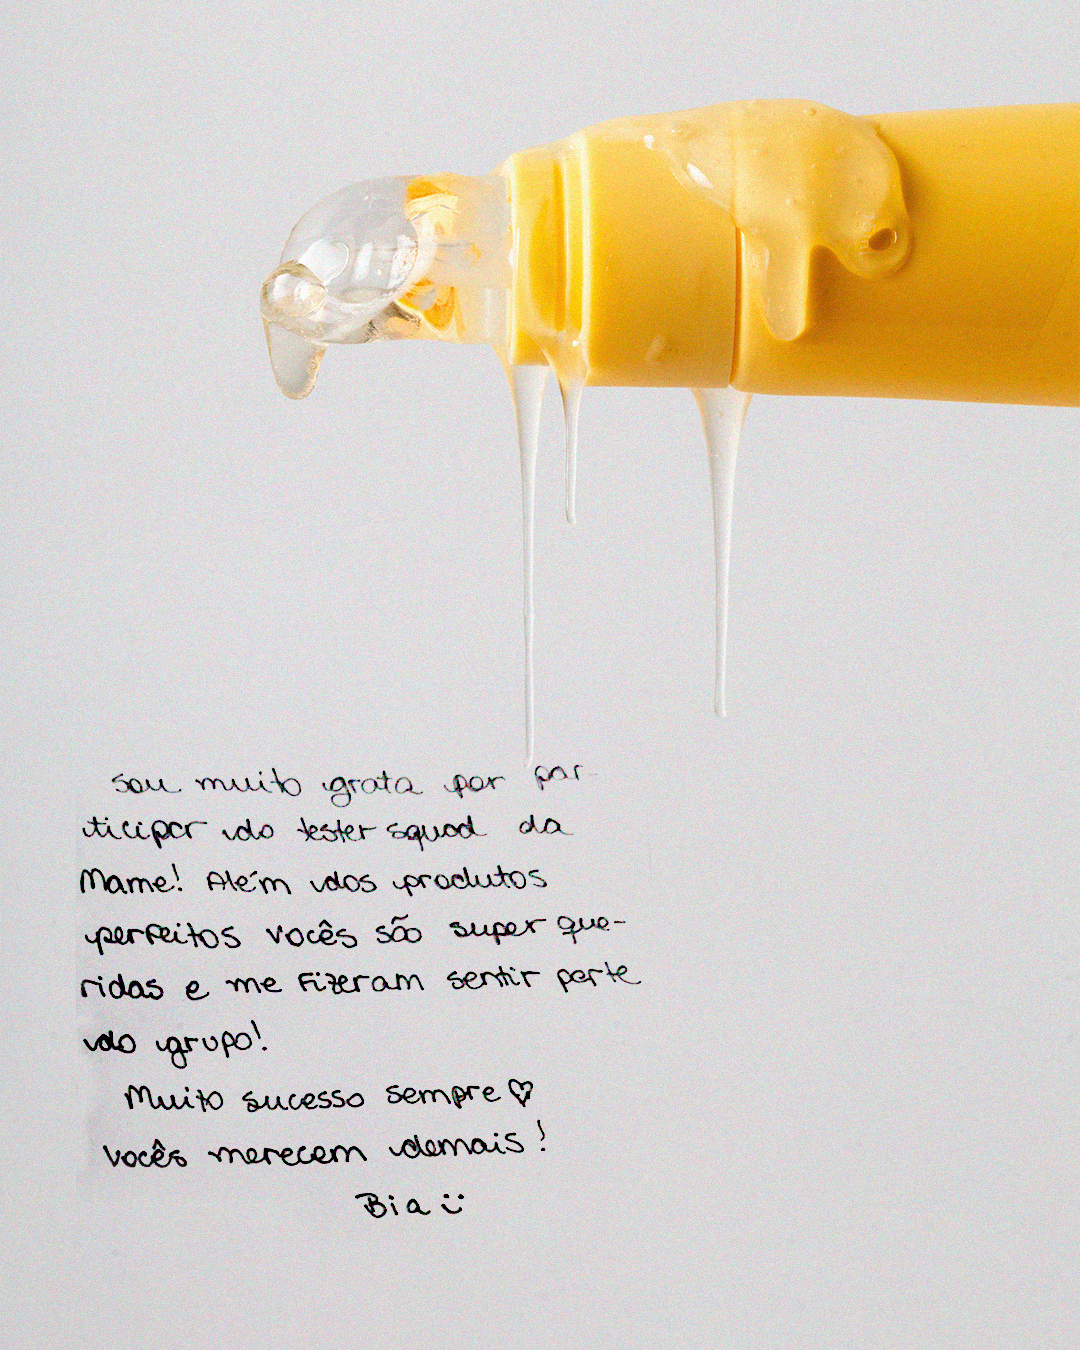 sou muito grata por par-
ticipar do tester squad da
Mame! Além dos produtos
perfeitos vocês são super que-
ridas e me fizeram sentir parte
do grupo!
Muito sucesso sempre ♡
Vocês merecem demais!
Bia :)